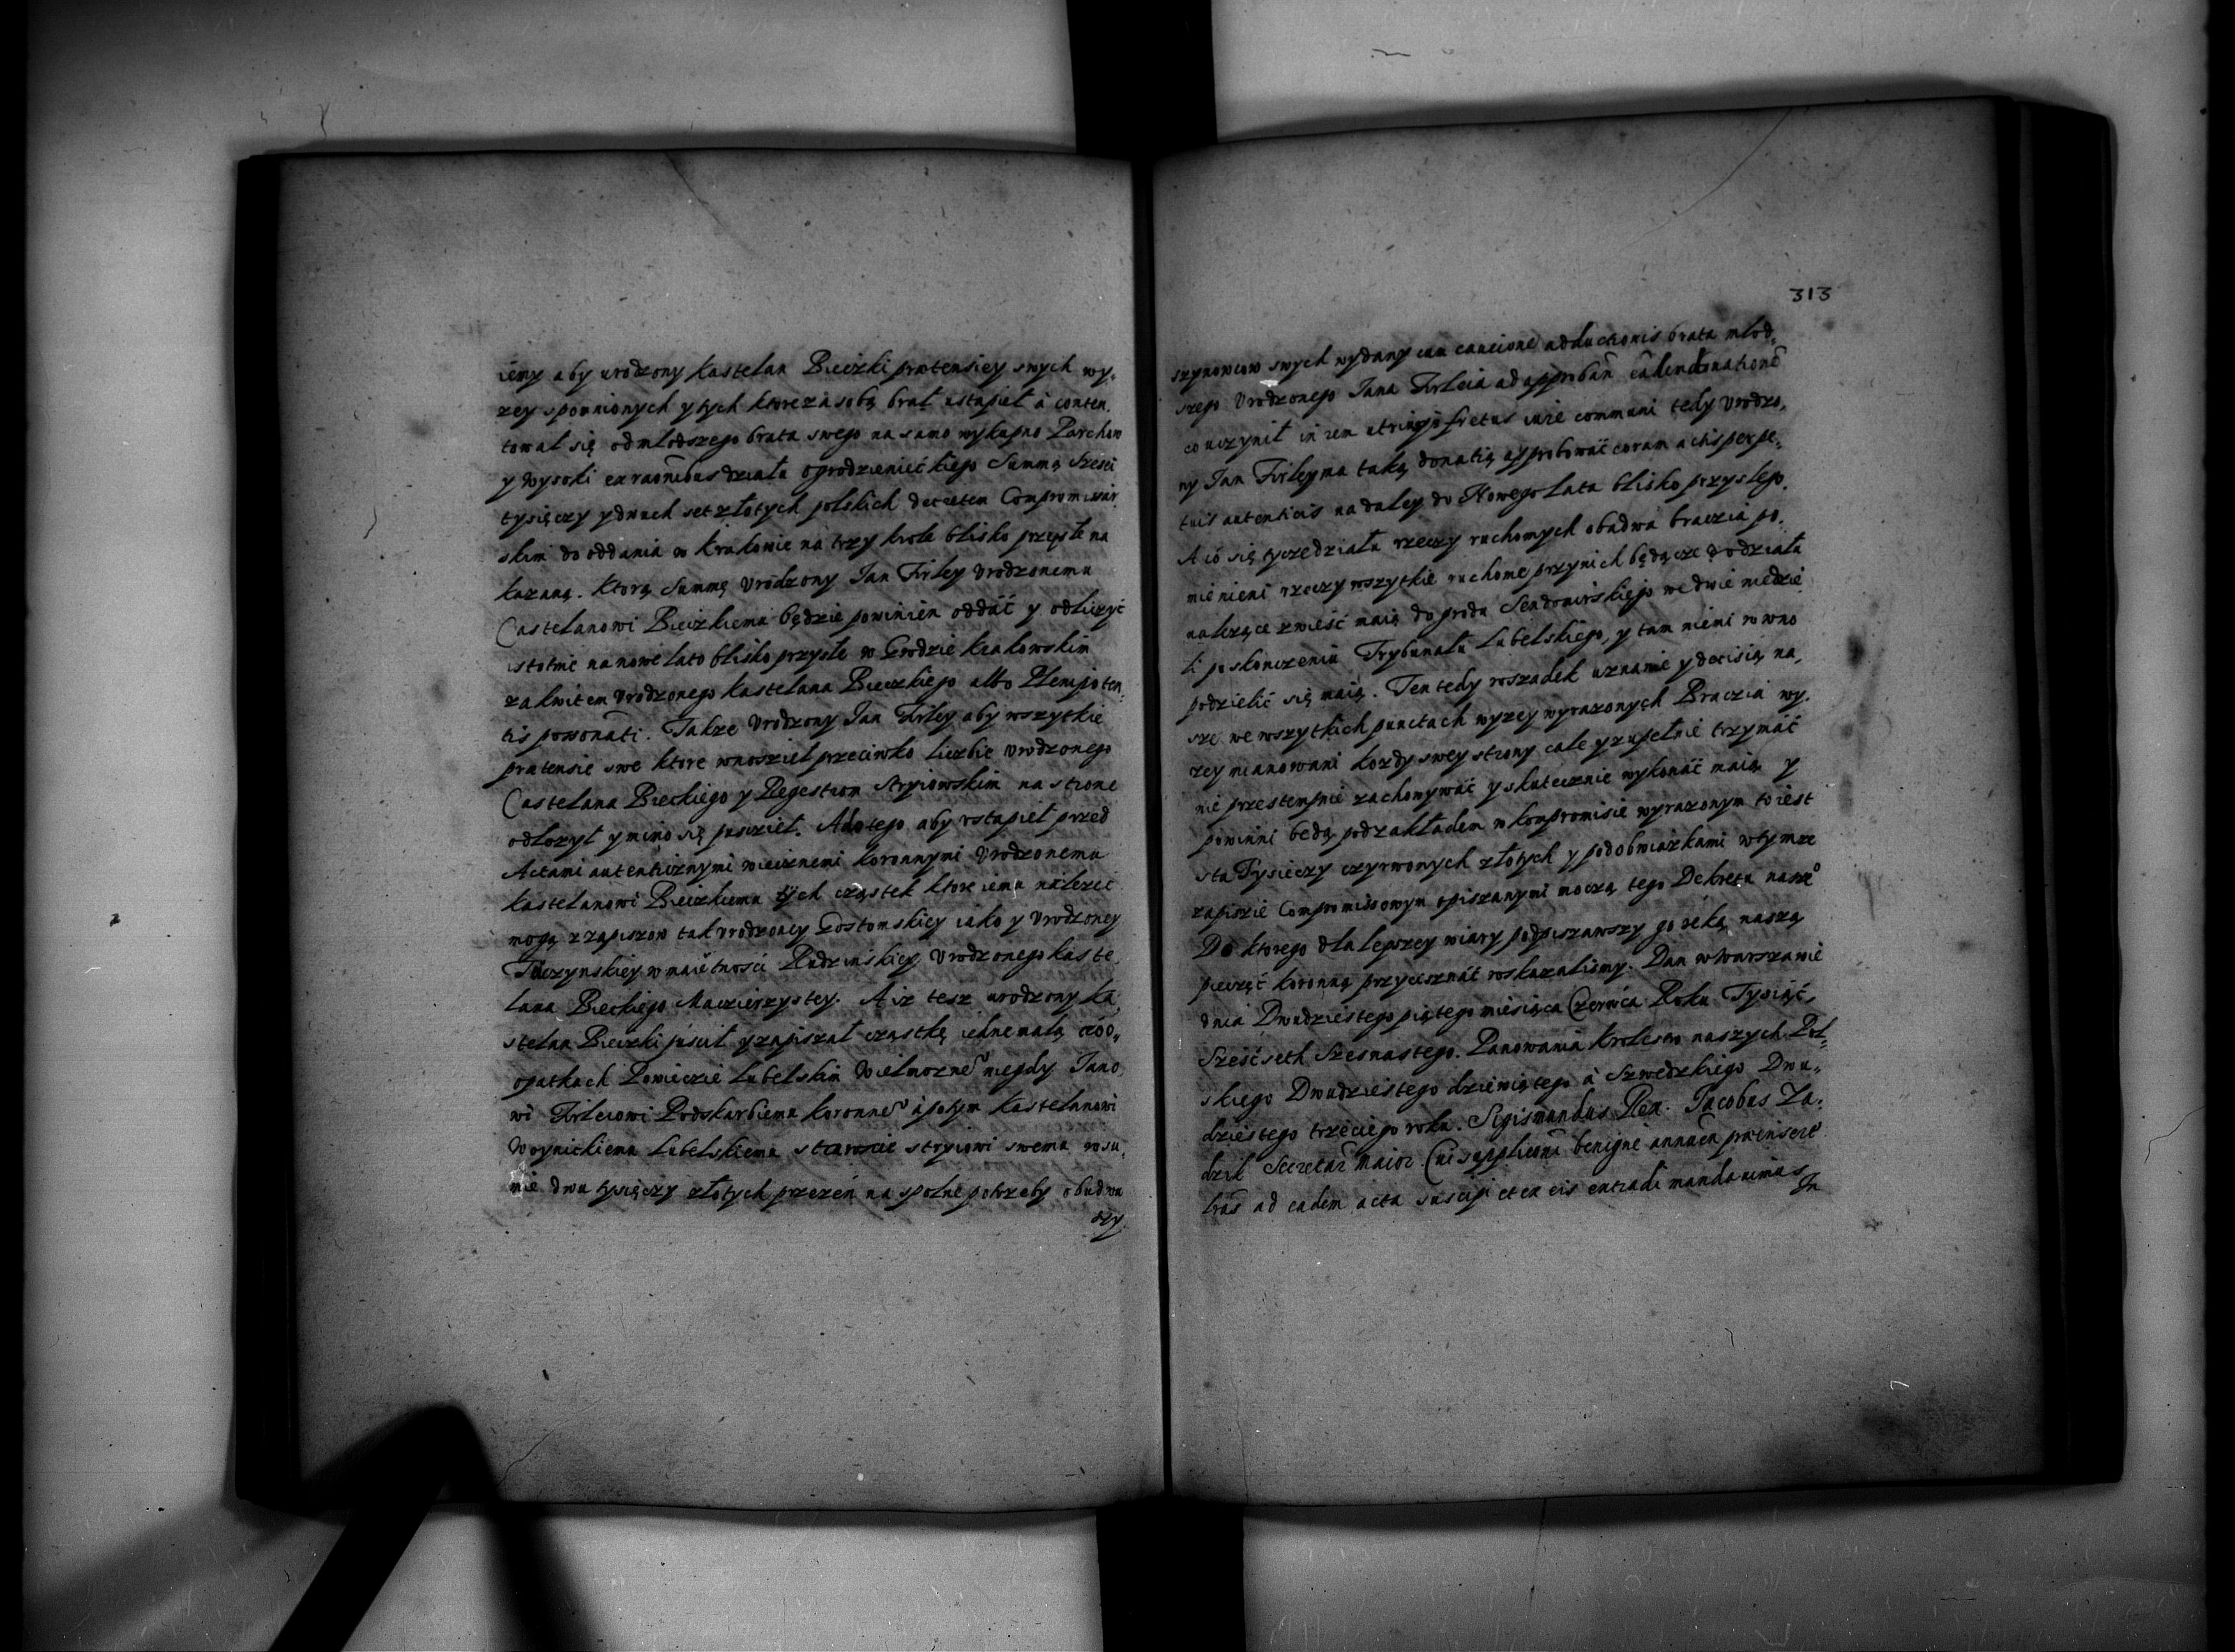 iemy aby urodzony Kastelan Bieczki prætensiey swych wy,
zey spomnionych y tych ktore za sobą brał ustąpieł à conten,
towal się od mlodszego brata swego na samo wykupno Parchow
y Wysoki ex raōnibus działu ogrodzienieckiego Summą Szesci
tysięczy y dwuch set złotych polskich decretem Compromissar
skim do oddania w Krakowie na trzy krole blisko przyszłe na
kazaną. Ktorą Summę Urodzony Jan Firley Urodzonemu
Castelanowi Bieczkiemu będzie powinien oddać y odliczyć
istotnie na nowe lato blisko przyszłe w Grodzie Krakowskim
za kwitem Urodzonego Kastelana Bieczkiego albo Plenipoten,
tis personāti. Takze Urodzony Jan Firley aby wszytkie
prætensie swe ktore wnosziel przeciwko liczbie Urodzonego
Castelana Bieckiego y Regestrom Stryiowskim na strone
odłozył y mimo się pusczieł. A do tego aby wstąpieł przed
Actami autenticznymi wiecznemi koronnymi Urodzonemu
Kastelanowi Bieczkiemu tych cząstek ktore iemu nalezeć
mogą z zapiszow tak Urodzoney Gostomskiey iako y Urodzoney
Tęczynskiey w maiętnosci Rudzinskiey Urodzonego Kaste,
lana Bieckiego Maczierzystey. A iz tesz urodzony Ka,
stelan Bieczki pusćił y zapiszał cząstkę iednę małą
opatkach Powieczie Lubelskim Wielmoznem° niegdy Jano,
wi Firleiowi Podskarbiemu Koronnem° à potym Kastelanowi
Woynickiemu Lubelskiemu staroscie stryiowi swemu w su,
mie dwu tysięczy złotych przezeń na spolne potrzeby obudwu
szy
313
szynowcow swych wydany cum caucione adductionis brata mlod,
szego Urodzonego Jana Firleia ad approbañ eandem donationē
co uczynił in rem utriusque fretus iure communi tedy Urodzo,
ny Jan Firley ma taką donatią approbować coram actis perpe,
tuis autenticis nadaley do Nowego Lata blisko przyszłego.
A cò się tycze działu rzeczy ruchomych obadwa braczia po,
mienieni rzeczy wszytkie ruchome przy nich będącze do działu
nalezące zwieść maią do grodu Sendomirskiego we dwie niedzie,
li po skonczeniu Trybunału Lubelskiego, y tam niemi rowno
podzielić się maią. Ten tedy rosządek uznanie y decisią na,
szę we wszytkich punctach wyzey wyrazonych Braczia wy,
zey mianowani kozdy swey strony cale y zupełnie trzymáć
nie przestempnie zachowywáć y skutecznie wykonáć maią y
powinni będą pod zakładem w kompromisie wyrazonym to iest
sta Tysieczy czyrwonych złotych y pod obwiązkami w tymze
zapiszie Compromissowym opiszanymi moczą tego Dekretu nasze°
Do ktorego dla lepszey wiary podpiszawszy go ręką naszą
pieczęć koronną przycisznąć roskazalismy. Dan w Warszawie
dnia Dwudziestego piątego miesiąca Czerwca Roku Tysiąć,
Szesć seth Szesnastego. Panowania Krolestw naszych Pol,
skiego Dwudziestego dziewiątego à Szwedzkiego Dwu,
dziestego trzeciego roku. Sigismundus Rex. Jacobus Za,
dzik Secretar̄ maior. Cui supplicōni benigne annuen̄ præinsertē
lrās ad eadem acta suscipi et ex eis extradi mandauimus
In